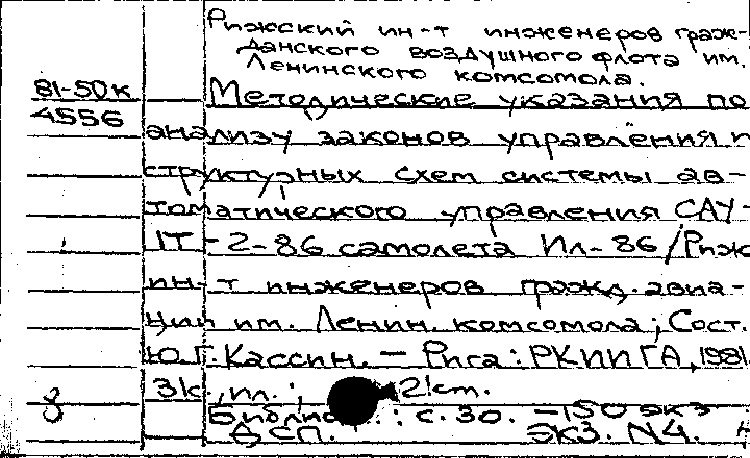 Рижский ин-т инженеров граж-
данского воздушного флота им.
Ленинского комсомола.
81-50к Методические указания по
4556 анализу законов управления и
структурных схем системы ав-
томатического управления САУ-
1Т-2-86 самолета Ил-86 / Рижс
ин-т инженеров гражд. авиа-
ции им. Ленин. комсомола; Сост.
Ю.Г. Кассин. — Рига: РКИИГА, 1981.
ил.; 21 cm.
: с. 30. — 150 экз
ДСП. Экз. N4.